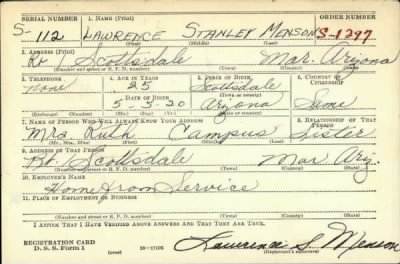 SERIAL NUMBER 1. NAME (Print) ORDER NUMBER
S-112 LAWRENCE STANLEY MENSON S-1297
(First) (Middle) (Last)
2. ADDRESS (Print)
Rt 1 Scottsdale Mar. Arizona
(Number and street or R. F. D. number) (Town) (County) (State)
3. TELEPHONE 4. AGE IN YEARS 5. PLACE OF BIRTH 6. COUNTRY OF CITIZENSHIP
None 25 Scottsdale
DATE OF BIRTH (Town or county)
5-3-20 Arizona Same
7. NAME OF PERSON WHO WILL ALWAYS KNOW YOUR ADDRESS 8. RELATIONSHIP OF THAT PERSON
Mrs. Ruth Campus Sister
(Mr., Mrs., Miss) (First) (Middle) (Last)
9. ADDRESS OF THAT PERSON
Rt. 1 Scottsdale Mar. Ariz.
(Number and street or R. F. D. number) (Town) (County) (State)
10. EMPLOYER'S NAME
Home from Service
11. PLACE OF EMPLOYMENT OR BUSINESS
(Number and street or R. F. D. number) (Town) (County) (State)
I AFFIRM THAT I HAVE VERIFIED ABOVE ANSWERS AND THAT THEY ARE TRUE.
REGISTRATION CARD
D. S. S. Form 1 Lawrence S. Menson
(Registrant's signature)